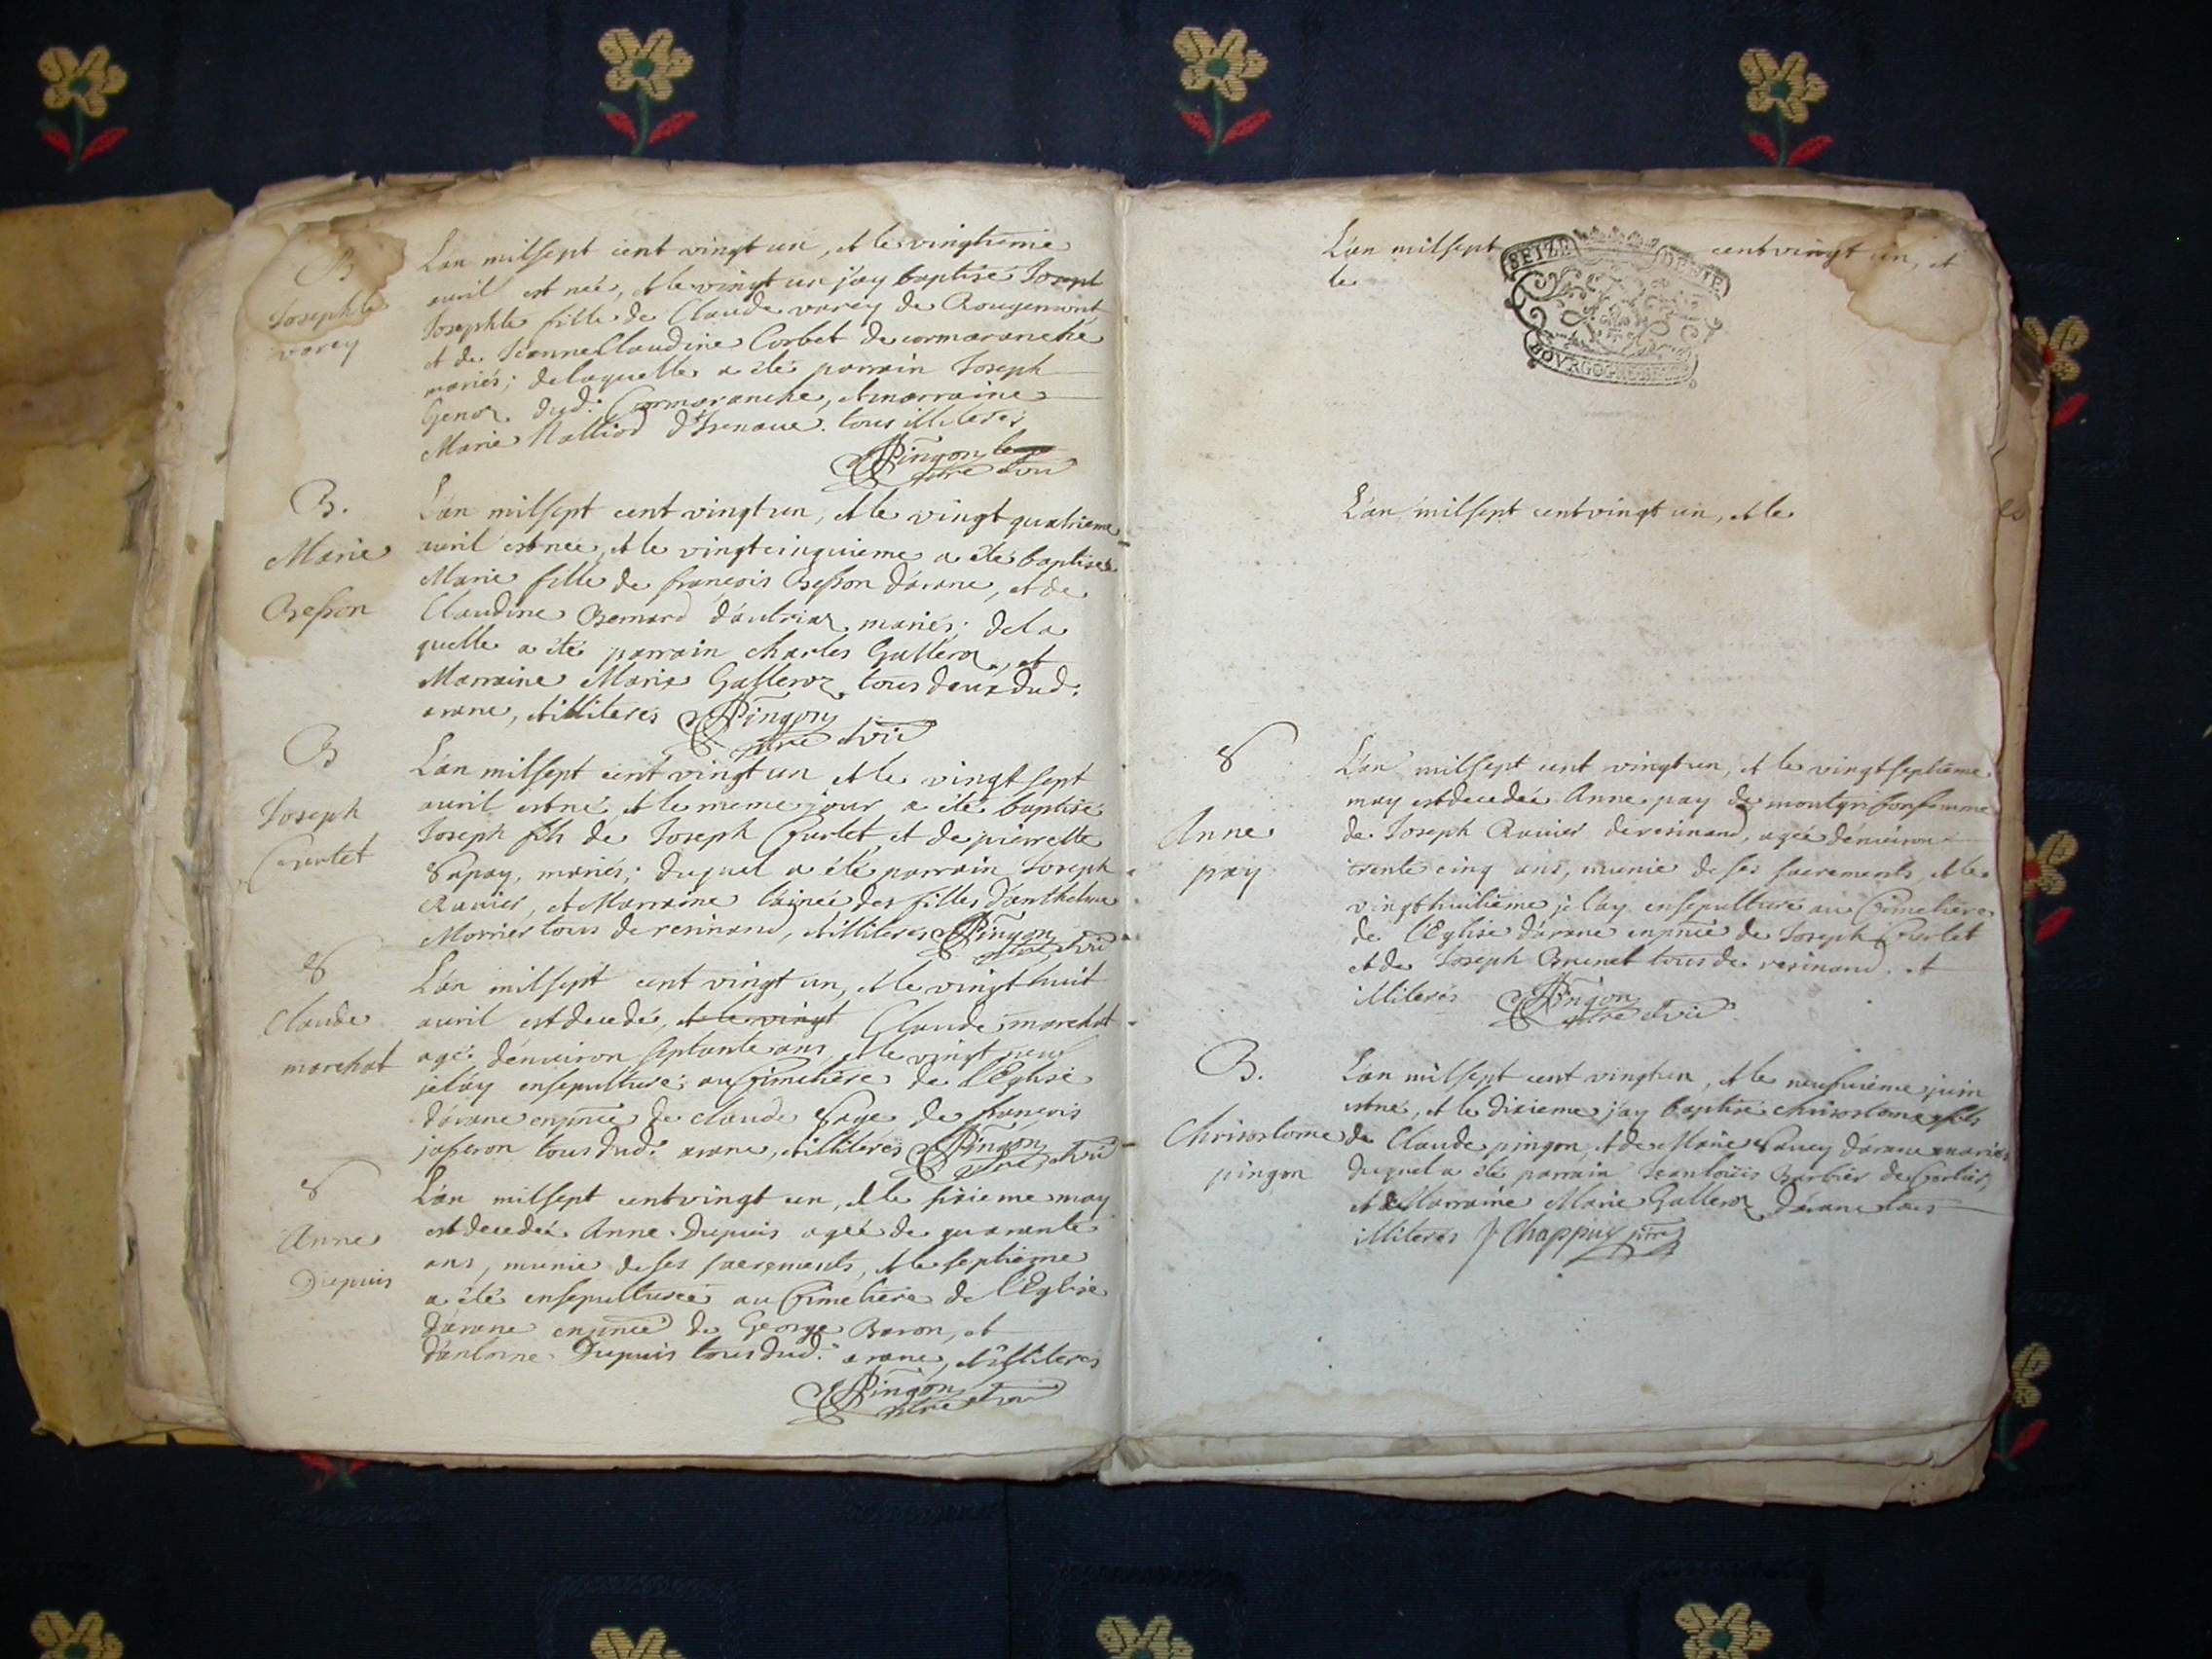 B
Josephte
varey
L'an milsept cent vingt un, et le vingtieme
avril est neé, et le vingt un j'ay baptisé Joseph
Josephte fille de Claude varey de Rougemont
et de Jeanne Claudine Corbet de cormaranche
mariés; de laquelle a été parrain Joseph
Genoz dud: Cormaranche, et marraine
Marie Nalliod d'Izenave. tous illiterés
Pingon
ptre et vic
B.
Marie
Besson
L'an milsept cent vingt un, et le vingt quatrieme
avril est neé, et le vingt cinquieme a été baptisée
Marie fille de françois Besson d'arane, et de
Claudine Bernard d'autriaz mariés; de la
quelle a été parrain charles Galleroz, et
Marraine Marie Galleroz tous deux dud:
arane, et illiterés Pingon
ptre et vic
B
Joseph
Curtet
L'an milsept cent vingt un et le vingt sept
avril est né et le meme jour a été baptisé
Joseph fils de Joseph Curtet, et de pierrette
Sapay, mariés; duquel a été parrain Joseph
Ravier, et Marraine l'ainée des filles d'anthelme
Morrier tous de resinand, et illiterés Pingon
ptre et vic
S
Claude
marchat
L'an milsept cent vingt un, et le vingt huit
avril est decedé, et le vingt Claude marchat
agé d'environ septante ans, et le vingt neuf
je l'ay ensepulturé au Cimetiere de l'Eglise
d'arane en pnce de claude Sage de françois
josseron tous dud: arane, et illiterés Pingon
ptre et vic
S
Anne
Dupuis
L'an milsept cent vingt un, et le sixieme may
est decedeé Anne Dupuis ageé de quarante
ans, munie de ses sacrements, et le septieme
a été ensepultureé au Cimetiere de l'Eglise
d'arane en pnce de George Baron, et
d'antoine Dupuis tous dud: arane, et illiterés
Pingon
ptre et vic
L'an milsept cent vingt un, et
le
SEIZE DENIE
BOVRGOGNE
L'an milsept cent vingt un, et le
S
Anne
pay
L'an milsept cent vingt un, et le vingt septieme
may est decedeé Anne pay de montgriffon femme
de Joseph Ravier de resinand, ageé d'environ
trente cinq ans, munie de ses sacrements, et le
vingt huitieme je l'ay ensepulturé au Cimetiere
de l'Eglise d'arane en pnce de Joseph Curtet
et de Joseph Brunet tous de resinand. et
illiterés Pingon
ptre et vic
B.
Chrisostome
pingon
L'an milsept cent vingt un, et le neufvieme juin
est né, et le dixieme j'ay baptisé chrisostome fils
de Claude pingon, et de Marie Savey d'arane mariés
duquel a été parrain Jean louis Barbier de Corlier,
et Marraine Marie Galleroz d'arane tous
illiterés J Chappuy ptre